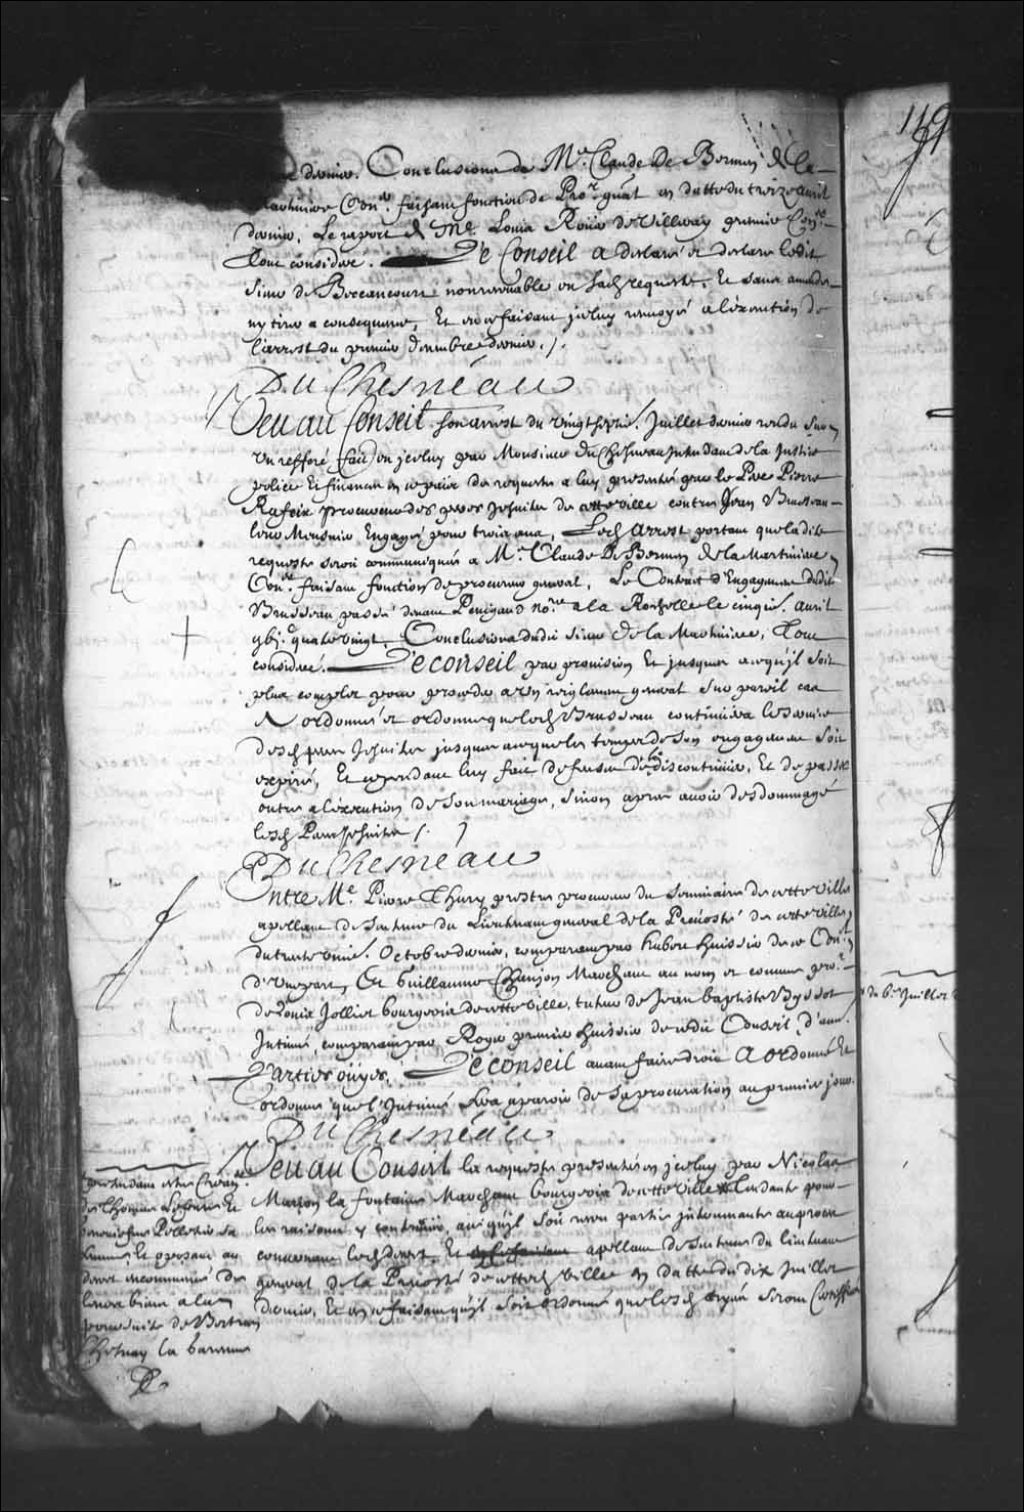 119
dernier. Conclusions de Me. Claude De Bermen de la
Martiniere Conr. faisant fonction de Pror. gnal en datte du treize avril
dernier. Le raport de Me. Louis Roüer de Villeray premier Conr.
Tout consideré. Le Conseil a declaré et declare ledit
sieur de Becancourt non recevable en sad. requeste. Et sans amende
ny tirer a consequence, Et en ce faisant jceluy renvoyé a l'execution de
l'arrest du premier decembre dernier ./.
DuChesneau
Veu au Conseil son arrest du vingt septie. Juillet dernier rendu sur
un refferé fait en jceluy par Monsieur DuChesneau Jntendant de la Justice
police et finances en ce païs des requestes a luy presentées par le Pere Pierre
Rafeix procureur des peres Jesuites de cette ville contre Jean Brusseau
Engagé pour trois ans, Led. Arrest portant que lesdites
requestes seroient communiquées a Me. Claude De Bermen de la Martiniere
Conr. faisant fonction de procureur general. Le Contract d'Engagement dudit
Brusseau passé devant nore. a la Rochelle le cinqie. avril
gbj. quatre vingt. Conclusions dudit sieur de la Martiniere, Tout
consideré. Le conseil par provision Et jusques a ce qu'jl soit
plus complet pour proceder a un reiglement general sur pareil cas
A ordonné et ordonne que led. Brusseau continüera le service
desd. peres Jesuites jusques a ce que le temps de son engagement soit
expiré, Et cependant luy fait defense de discontinüer, Et de passer
outre a l'execution de son mariage, sinon apres avoir desdommagé
lesd. Peres Jesuites ./.
DuChesneau
Entre Me. Pierre Thury prestre procureur du Seminaire de cette ville
apellant de Sentence du Lieutenant general de la Prevosté de cette ville
du trente unie. Octobre dernier, comparant par hubert huissier de ce Conl.
d'une part, Et Guillaume Chanjon Marchant au nom et comme pror.
de Louis Jolliet bourgeois de cette ville, tuteur de Jean baptiste Byssot
Jntimé, comparant par Roger premier huissier de cedit Conseil, d'autre.
Parties oüyes. Le conseil avant faire droit A ordonné et
ordonne que l'Jntimé fera aparoir de sa procuration au premier jour.
DuChesneau
Veu au Conseil la requeste presentée en jceluy par Nicolas
Marion la fontaine Marchant bourgeois de cette ville tendante pour
les raisons y contenües, a ce qu'jl soit receu partie jntervenante au procez
concernant led. decret, Et apellant de Sentence du lieutenant
general de la Prevosté de cetted. ville en datte du dix Juillet
dernier, Et en ce faisant qu'jl soit ordonné que lesd.
pretendant estre Crean.
de Thomas Lefebvre Et
Genevieve Pelletier sa
femme, Et opposant au
decret des
biens a la
poursuite de Bertran
Chesnay la Garenne
du 6e. Juillet